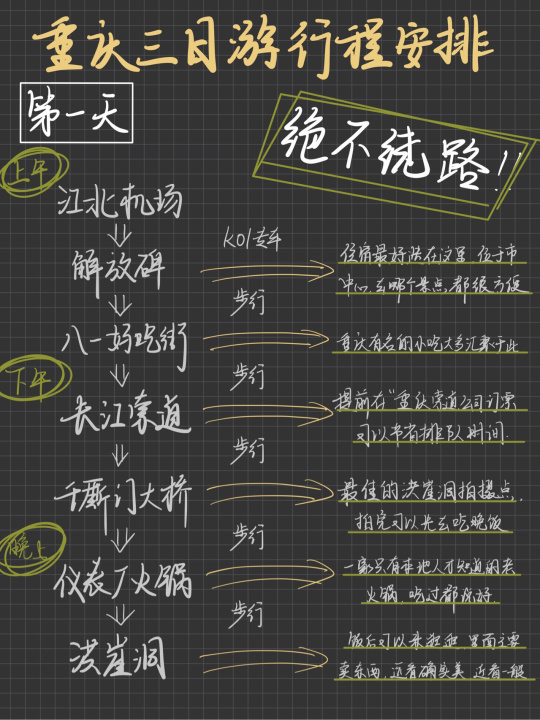 重庆三日游行程安排
第一天
绝不绕路!!
上午
江北机场
K01专车
解放碑
住宿最好选在这里,位于市
中心,去哪个景点都很方便
步行
八一好吃街
重庆有名的小吃大多汇聚于此
下午
步行
长江索道
提前在"重庆索道公司订票
可以节省排队时间.
步行
千厮门大桥
最佳的洪崖洞拍摄点,
拍完可以先去吃晚饭
晚上
步行
仪表厂火锅
一家只有本地人才知道的老
火锅,吃过都说好
步行
洪崖洞
饭后可以来逛逛,里面主要
卖东西,远看确实美 近看一般